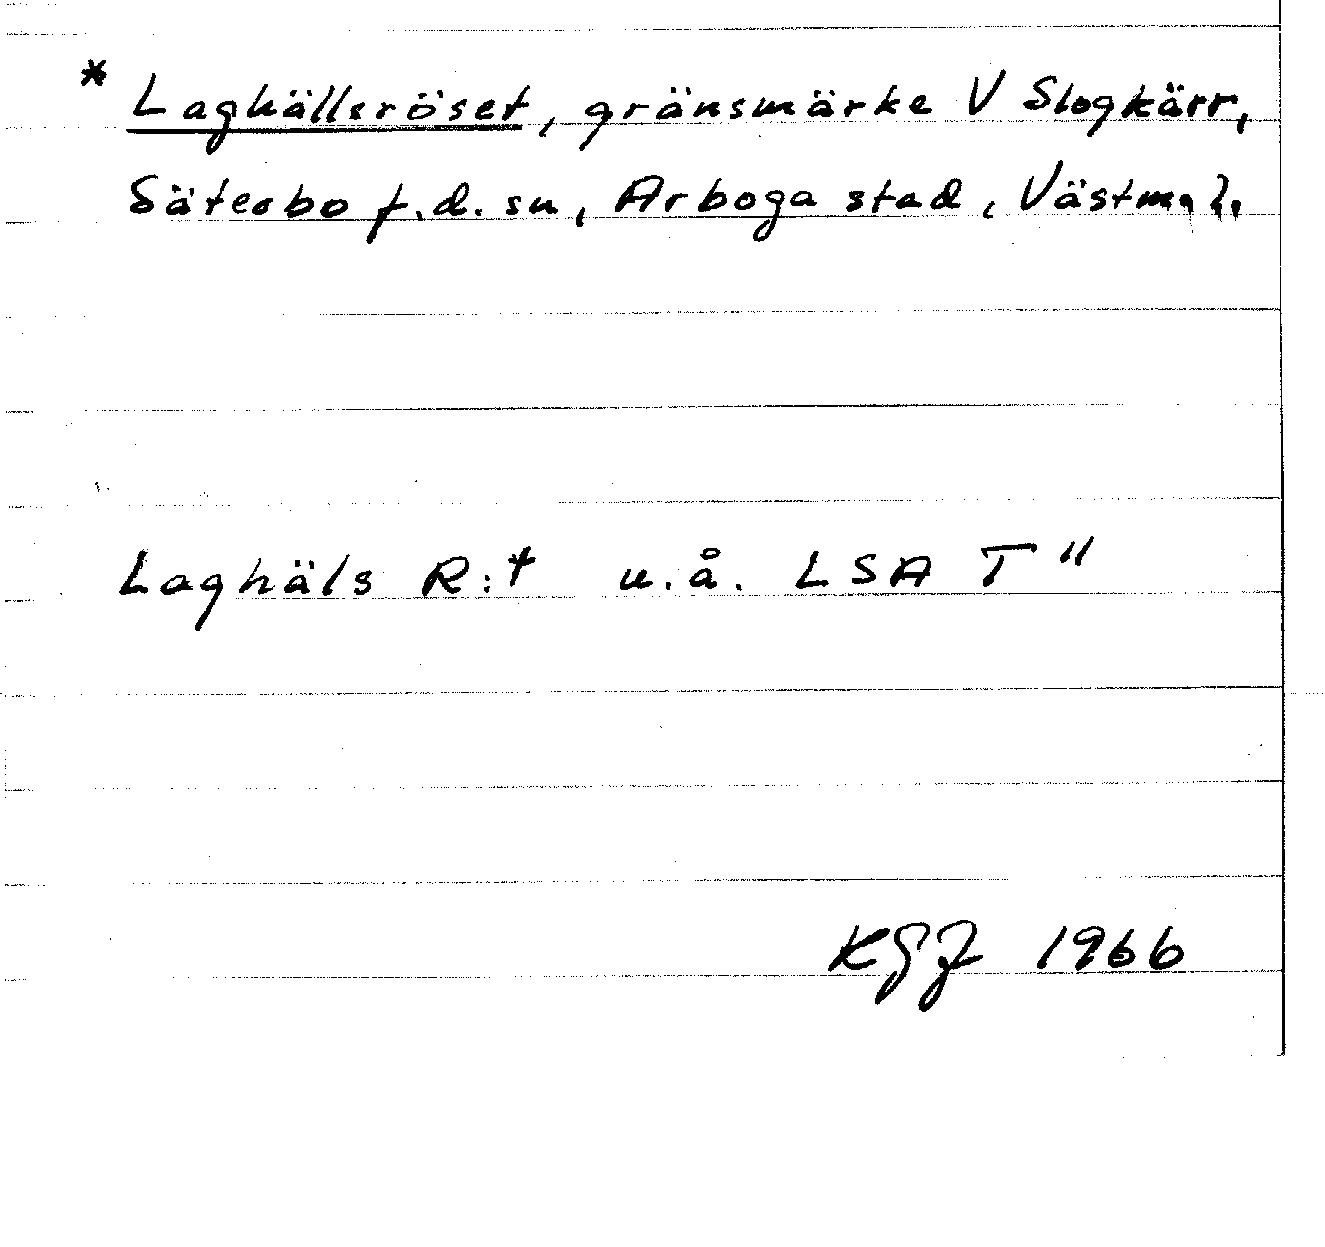 * Laghällsröset, gränsmärke V Slogkärr,
Säterbo f.d. sn, Arboga stad, Västm. l.
Laghäls R:t u.å. LSA T "
KGJ 1966